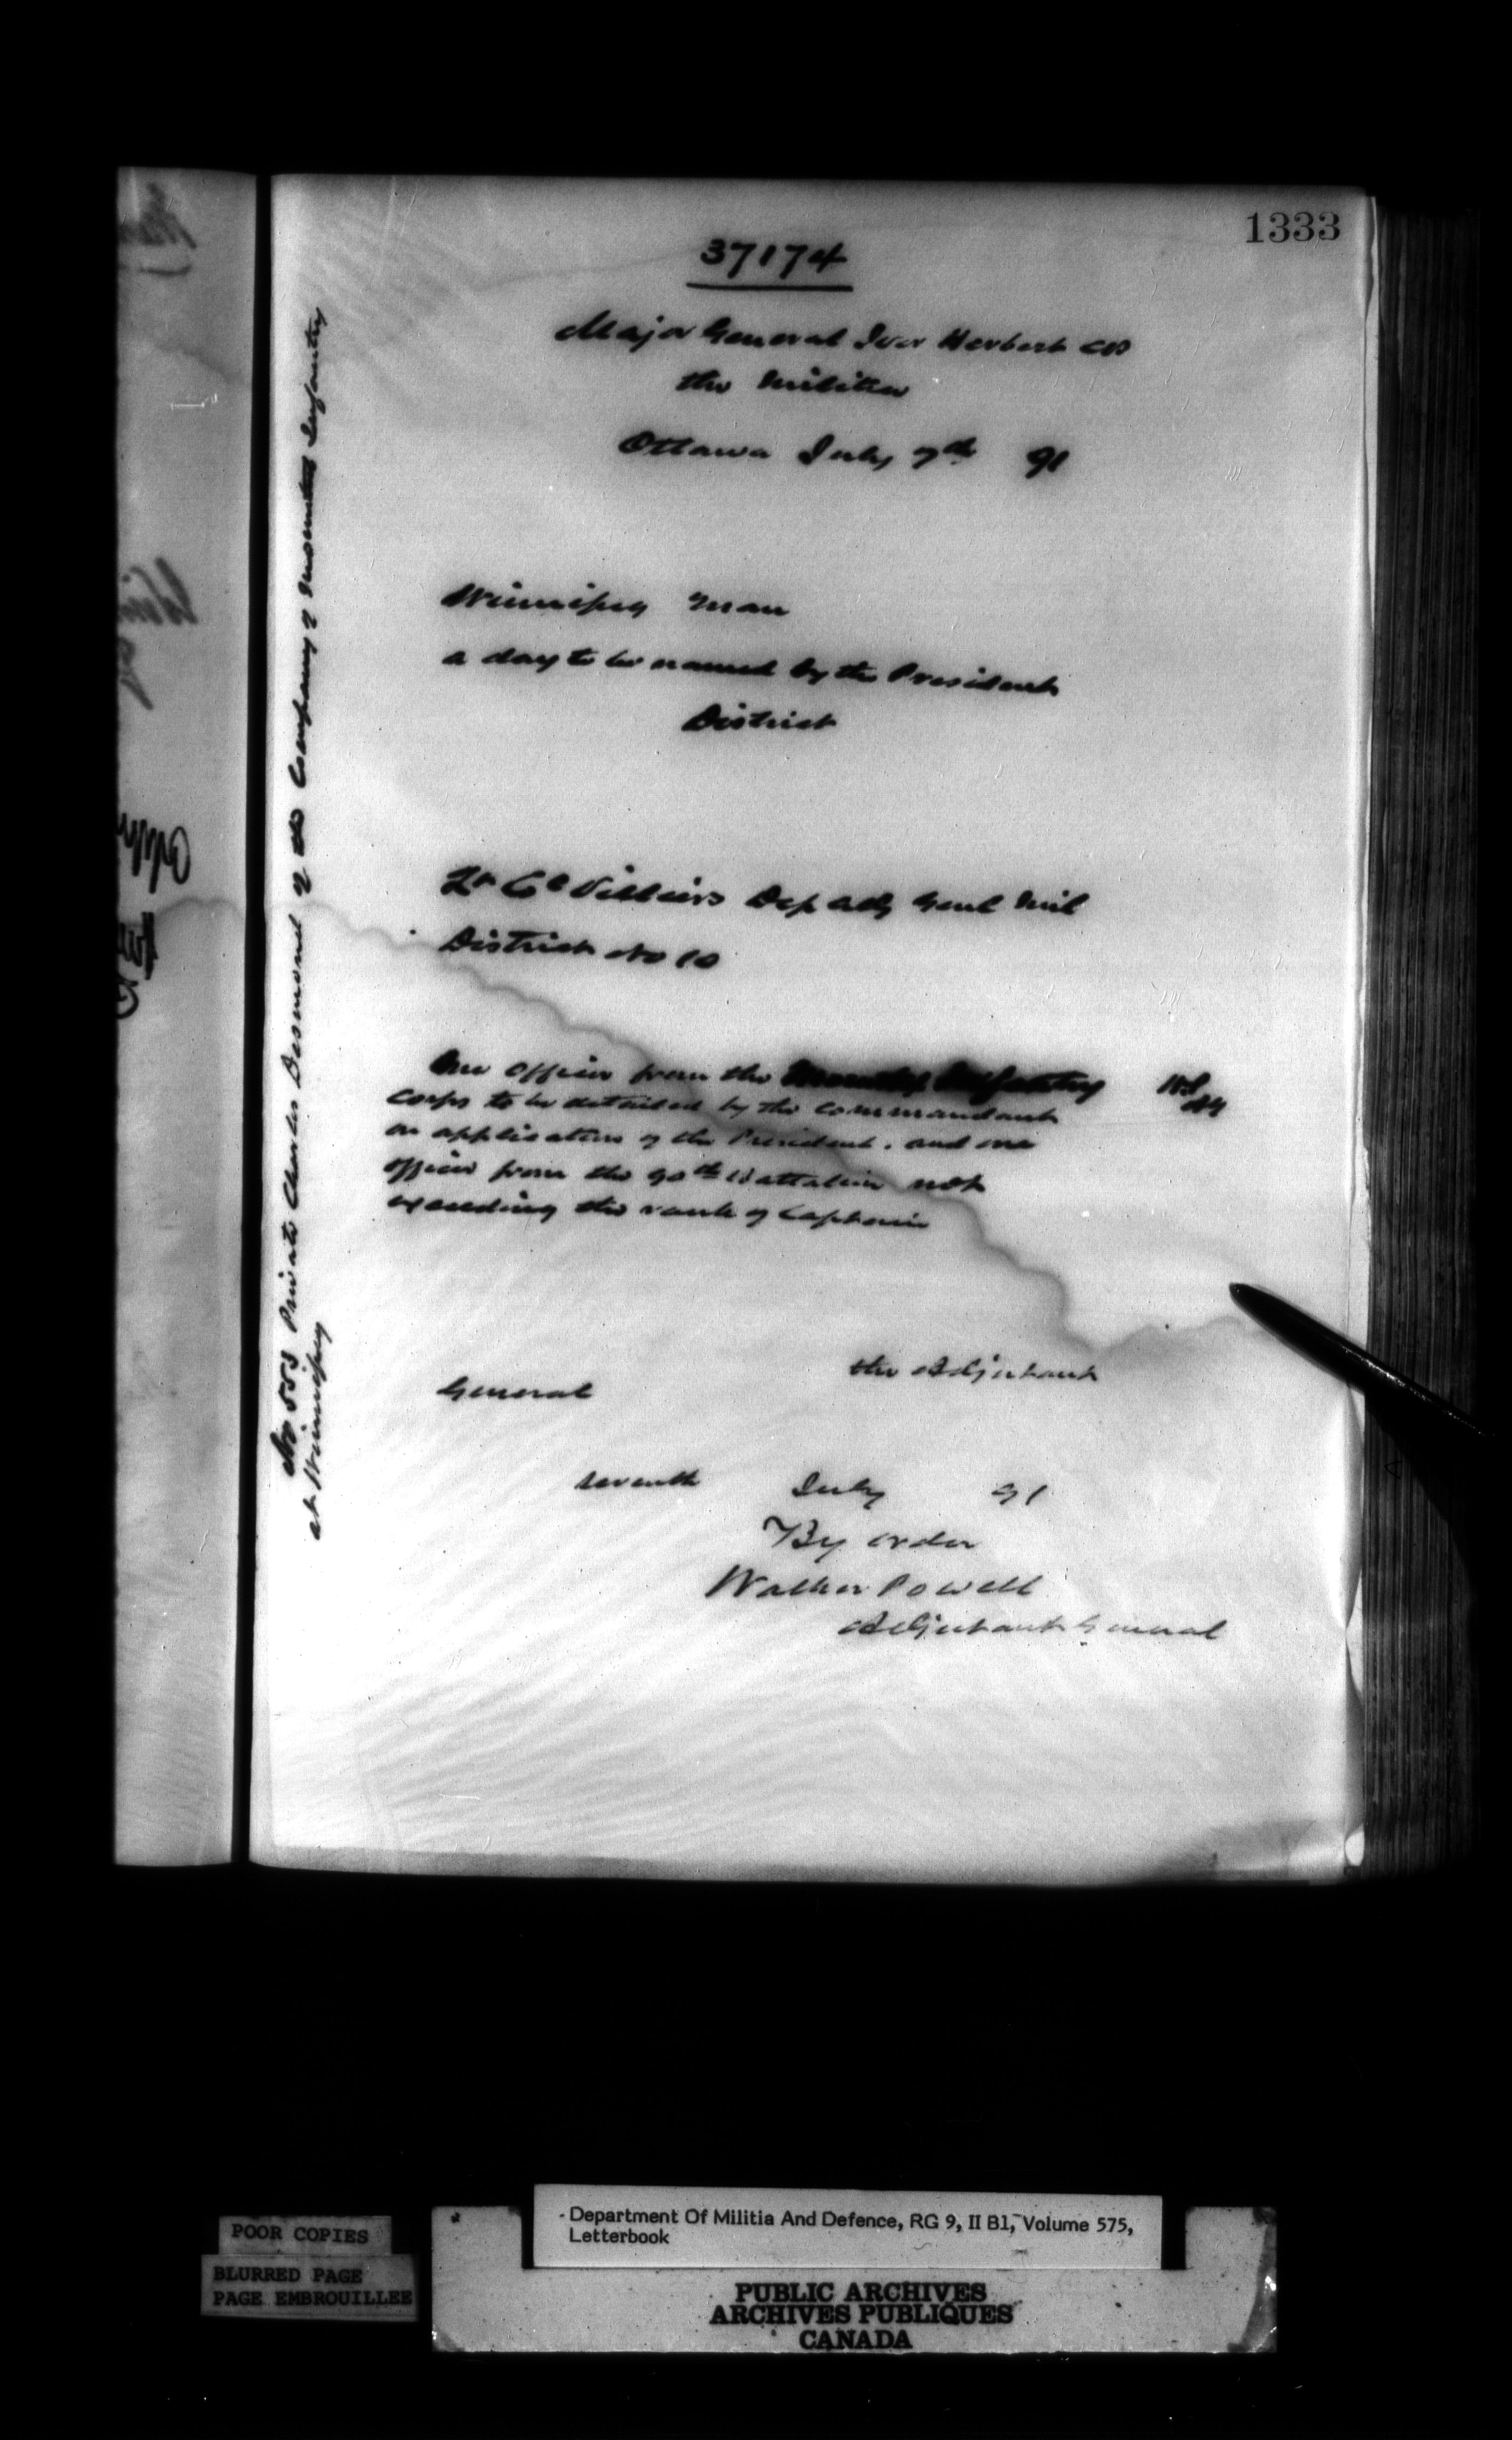 1333
37174
Major General Ivor Herbert CB
the Militia
Ottawa July 7th 91
Winnipeg Man
a day to be named by the President
District
Lt Col Villiers Dep Adj Genl Mil
District No 10
One Officer from the Mounted Infantry
Corps to be detailed by the Commandant
on application of the President. and one
officer from the 90th Battalion not
exceeding the rank of Captain
the Adjutant
General
seventh July 91
By order
Walker Powell
Adjutant General
No 553 Private Charles Desmond of the Company of Mounted Infantry
at Winnipeg
POOR COPIES
BLURRED PAGE
PAGE EMBROUILLEE
Department Of Militia And Defence, RG 9, II B1, Volume 575,
Letterbook
PUBLIC ARCHIVES
ARCHIVES PUBLIQUES
CANADA